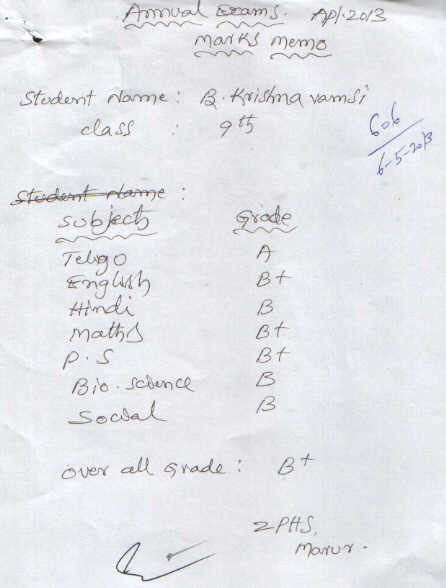 Annual Exams. Apl.2013
Marks Memo
Student Name : B. Krishna vamsi
class : 9th
606
6-5-2013
Student Name :
Subjects Grade
Telugo A
English B+
Hindi B
Maths B+
P.S B+
Bio.science B
Social B
over all Grade : B+
ZPHS,
Marur.